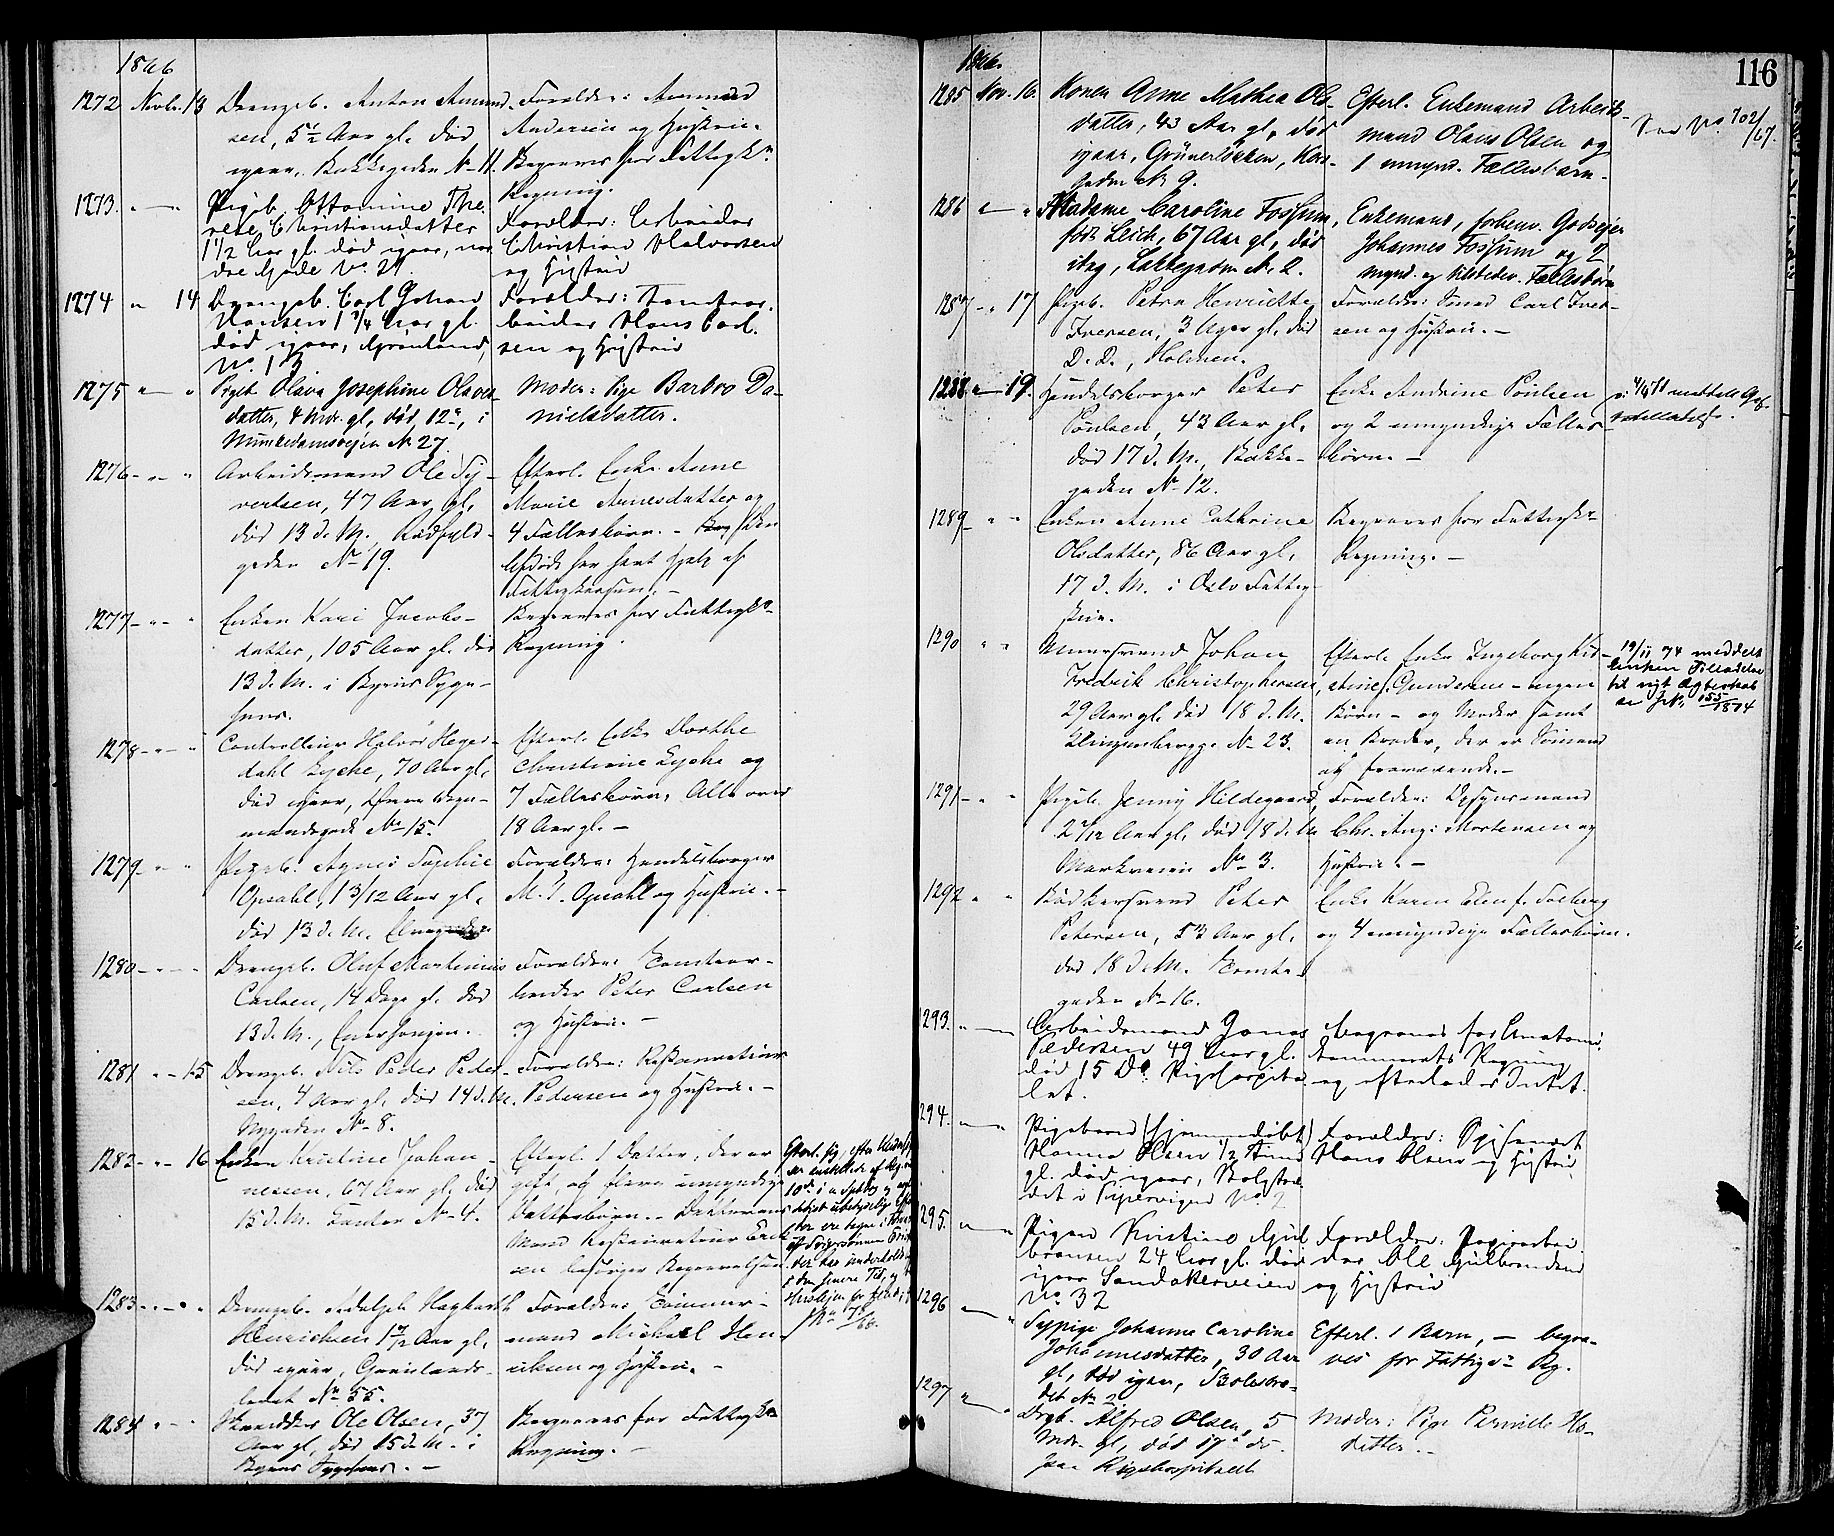 1866
1272 Novbr. 13 Drengeb. Anton Amund-
sen, 5 1/2 Aar gl. død
igaar, Bakkegaden No 11.
Forældre: Amund
Andersen og Hustrue.
Begraves for Fattigk.
Regning.
1273. — " — Pigeb. Ottomine The-
rese Christiansdatter
1 1/2 Aar gl. død igaar,
Gade No. 21
Forældre: Arbeider
Christian Halvorsen
og Hustrue
1274 " 14 Drengeb. Carl Johan
Hansen 1 3/4 Aar gl.
død igaar, Grønland,
No. 13
Forældre: Tomtear-
beider Hans Carl-
sen og Hustrue
1275 " — " Pigeb. Olava Josephine Olaves-
datter, 4 Mdr. gl, død 12te, i
Munkedamsveien No 27.
Moder: Pige Barbro Da-
nielsdatter.
1276 — " — " Arbeidsmand Ole Sy-
vertsen, 47 Aar gl,
død 13 d. M., Rødfyld-
gaden No 19.
Efterl. Enke Anne
Marie Arnesdatter og
4 Fællesbørn. — Den
Afdøde har havt Hjelp af
Fattigkassen. —
1277 — " — " Enken Kari Jacobs-
datter, 105 Aar gl. død
13 d. M. i Byens Syge-
huus.
Begraves for Fattigk.
Regning.
1278 — " — " Controlleur Halvor Heger-
dahl Lyche, 70 Aar gl,
død igaar, Store Vogn-
mandsgade No 15.
Efterl. Enke Dorthe
Christine Lyche og
7 Fællesbørn, Alle over
18 Aar gl. —
1279 — " — " Pigeb. Agnes Sophie
Opsahl, 1 3/12 Aar gl,
død 13 d. M.
Forældre: Handelsborger
M. T. Opsahl og Hustrue. —
1280 — " — " Drengeb. Oluf Martinius
Carlsen, 14 Dage gl. død
13 d. M., Enerhougen.
Forældre: Tomtear-
beider Peter Carlsen
og Hustrue. —
1281 " — 15 Drengeb. Nils Peder Peder-
sen, 4 Aar gl, død 14 d. M.
Nygaden No 8.
Forældre: Restaurateur
Pedersen og Hustrue. —
1282 — " — 16 Enken Kristine Johan-
nessen, 67 Aar gl, død
15 d. M. Kanten No 4.
Efterl. 1 Datter, der er
gift, og flere umyndige
Datterbørn. — Datterens
Mand Restaurateur Erik-
sen besørger Begravelsen.
1283 — " — " Drengeb. Adolph Hagbarth
Henriksen 1 9/12 Aar gl,
død igaar, Grønlands-
leret No 55.
Forældre: Tømmer-
mand Michael Hen-
riksen og Hustrue. —
1284 " — " Skrædder Ole Olsen, 37
Aar gl, død 15 d. M. i
Byens Sygehuus. —
Begraves for Fattigk.
Regning. —
116
1866.
1285 Nov. 16. Konen Anne Mathea Ols-
datter, 43 Aar gl, død
igaar, Grünerløkken, Kors-
gaden No 9.
Efterl. Enkemand Arbeids-
mand Olaus Olsen og
1 umynd. Fællesbarn.
See No. 702/67.
1286 " — " Madame Caroline Fossum,
født Leich, 67 Aar gl, død
idag, Lakkegaden No. 2.
Enkemand, forhenv. Godseier
Johannes Fossum og 2
mynd. og tilstedev. Fællesbørn
1287 — " 17 Pigeb. Petra Henriette
Iversen, 3 Uger gl. død
D. D., Holmen.
Forældre: Smed Carl Iver-
sen og Hustrue. —
1288 " — 19. Handelsborger Peter
Poulsen, 43 Aar gl,
død 17 d. M., Bakke-
gaden No 12.
Enke Andrine Poulsen
og 2 umyndige Fælles-
børn. —
1289 — " — " Enken Anne Cathrine
Olsdatter, 86 Aar gl,
17 d. M. i Oslo Fattig-
huus.
Begraves for Fattigk.
Regning. —
1290 " " Murersvend Johan
Fredrik Christophersen,
29 Aar gl, død 18 d. M.
Klingenbergg. No 23.
Efterl. Enke Ingeborg Kir-
stine f. Gundersen — ingen
Børn — og Moder samt
en Broder, der er Sømand
og fraværende. —
19/11 74 meddelt
Enken Tilladelse
til nyt Ægteskab
1291 — " — " Pigeb. Jenny Hildegaard,
2 7/12 Aar gl, død 18 d. M
Markveien No 3.
Forældre: Opsynsmand
Chr. Aug. Mortensen og
Hustrue. —
1292 " " Bødkersvend Peter
Petersen, 53 Aar gl,
død 18 d. M. Tomte-
gaden No 16.
Enke Karen Elen f. Solberg
og 4 umyndige Fællesbørn.
1293. " — Arbeidsmand Jonas
Pedersen 49 Aar gl.
død 15 Ds. Rigshospita-
let.
begraves for Anatomi-
kammerets Regning
og efterlader Intet.
1294. — " Pigebarn (hjemmedøbt)
Hanna Olsen 1/2 Time
gl. død igaar, Bolgstræ-
det i Pipervigen No. 2
Forældre: Spisevert
Hans Olsen og Hustrue
1295. " — " Pigen Kristine Gul-
bransen 24 Aar gl. død
igaar Sandakerveien
No 32
Forældre: Papirarbei-
der Ole Gulbrandsen
og Hustrue
1296 — " Sypige Johanne Caroline
Johannesdatter, 30 Aar
gl, død igaar,
No 2.
Efterl. 1 Barn, — begra-
ves for Fattigvs. Rg.
1297 " — " Drgb. Alfred Olsen, 5
Mdr. gl, død 17de ds.
paa Rigshospitalet
Moder: Pige Pernille
datter. —